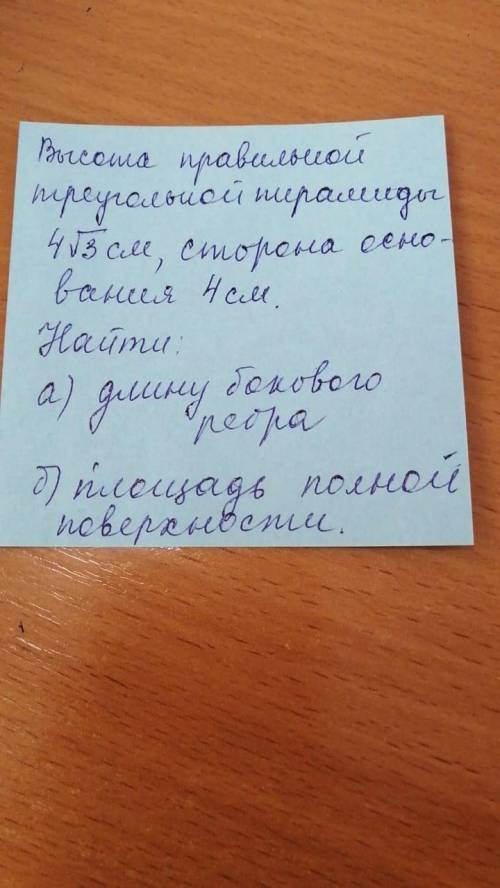 Высота правильной
треугольной пирамиды
4√3 см, сторона осно-
вания 4 см.
Найти:
а) длину бокового
ребра
б) площадь полной
поверхности.